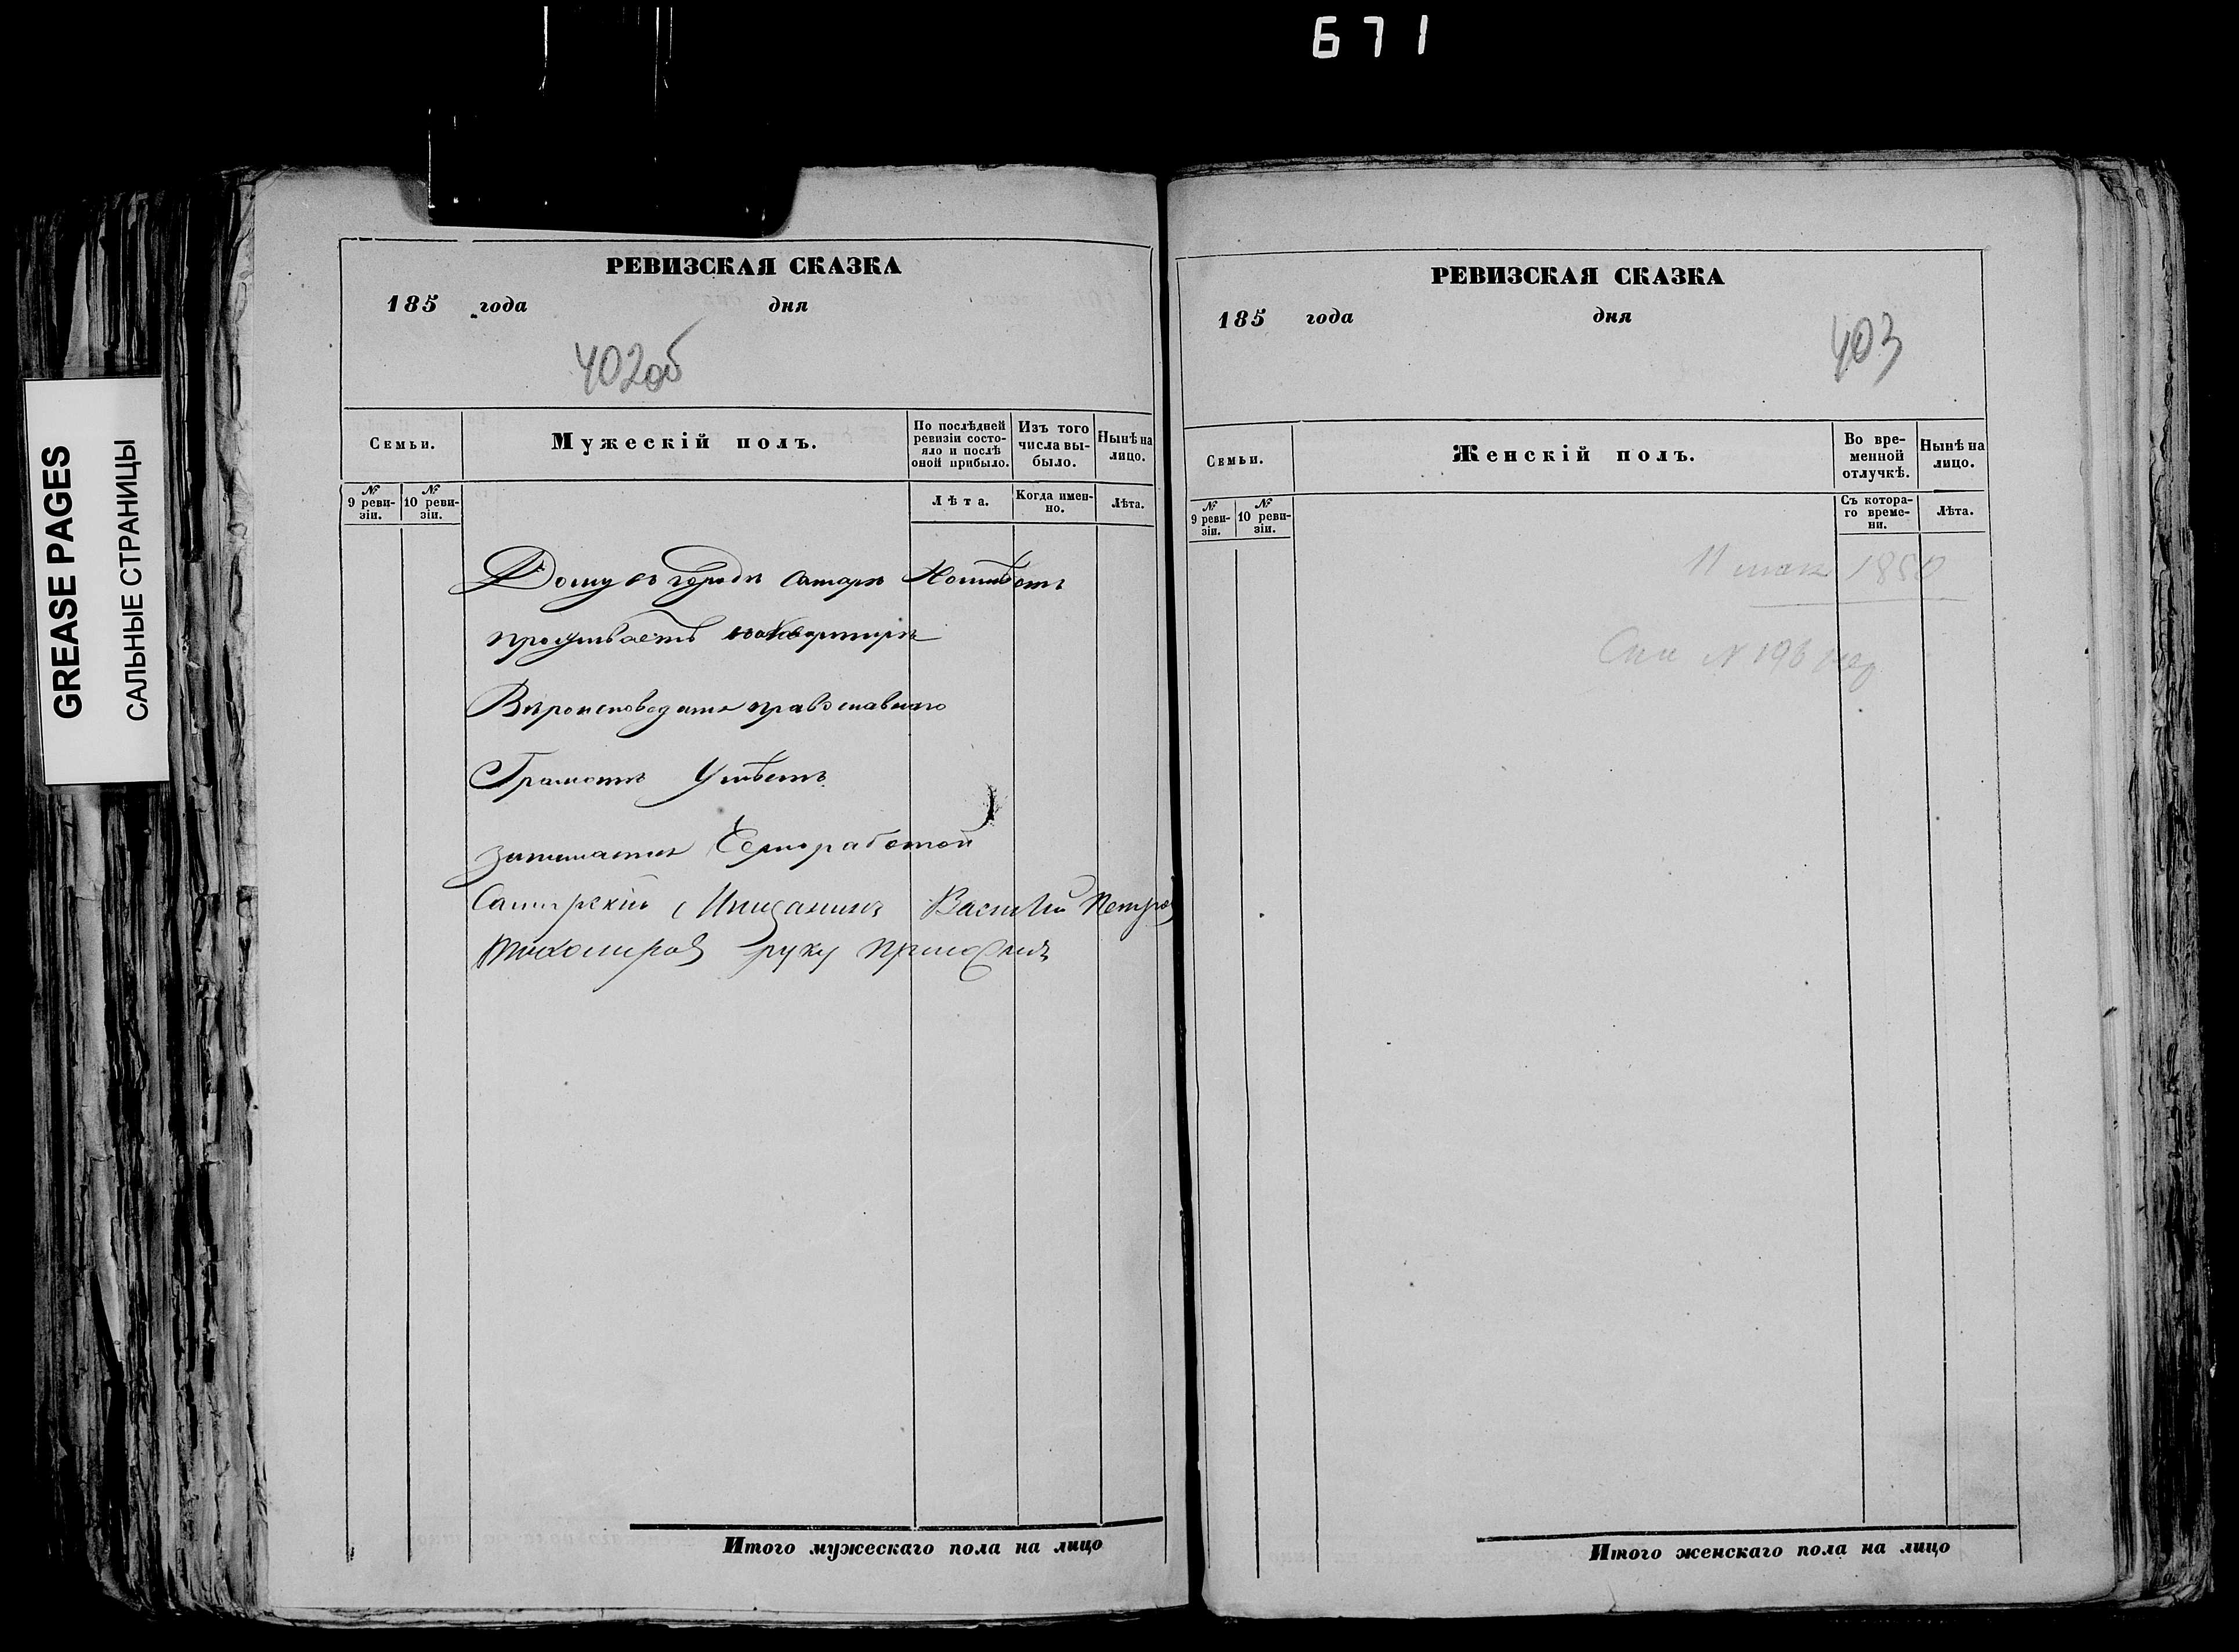 671
GREASE PAGES
САЛЬНЫЕ СТРАНИЦЫ
РЕВИЗСКАЯ СКАЗКА
185 года дня
402об
Семьи.
Мужескій полъ.
По послѣдней ревизіи состояло и послѣ оной прибыло.
Изъ того числа выбыло.
Нынѣ на лицо.
№ 9 ревизіи.
№ 10 ревизіи.
Лѣта.
Когда именно.
Лѣта.
Дому въ городѣ Самарѣ Неимѣетъ
проживаетъ наквартирѣ
Вѣроисповеданія православнаго
Грамотѣ Умѣетъ
занимается Черноработой
Самарскій Мищанинъ Василий Петров
Тихомиров руку приложилъ
Итого мужескаго пола на лицо
РЕВИЗСКАЯ СКАЗКА
185 года дня
403
Семьи.
Женскій полъ.
Во временной отлучкѣ.
Нынѣ на лицо.
№ 9 ревизіи.
№ 10 ревизіи.
Съ котораго времени.
Лѣта.
11 мая 1850
№ 196
Итого женскаго пола на лицо